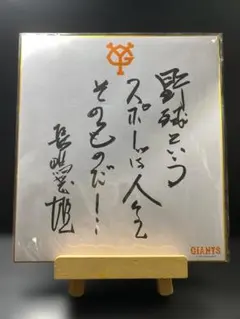 YG
野球という
スポーツは人生
そのものだ!
長嶋茂雄
GIANTS